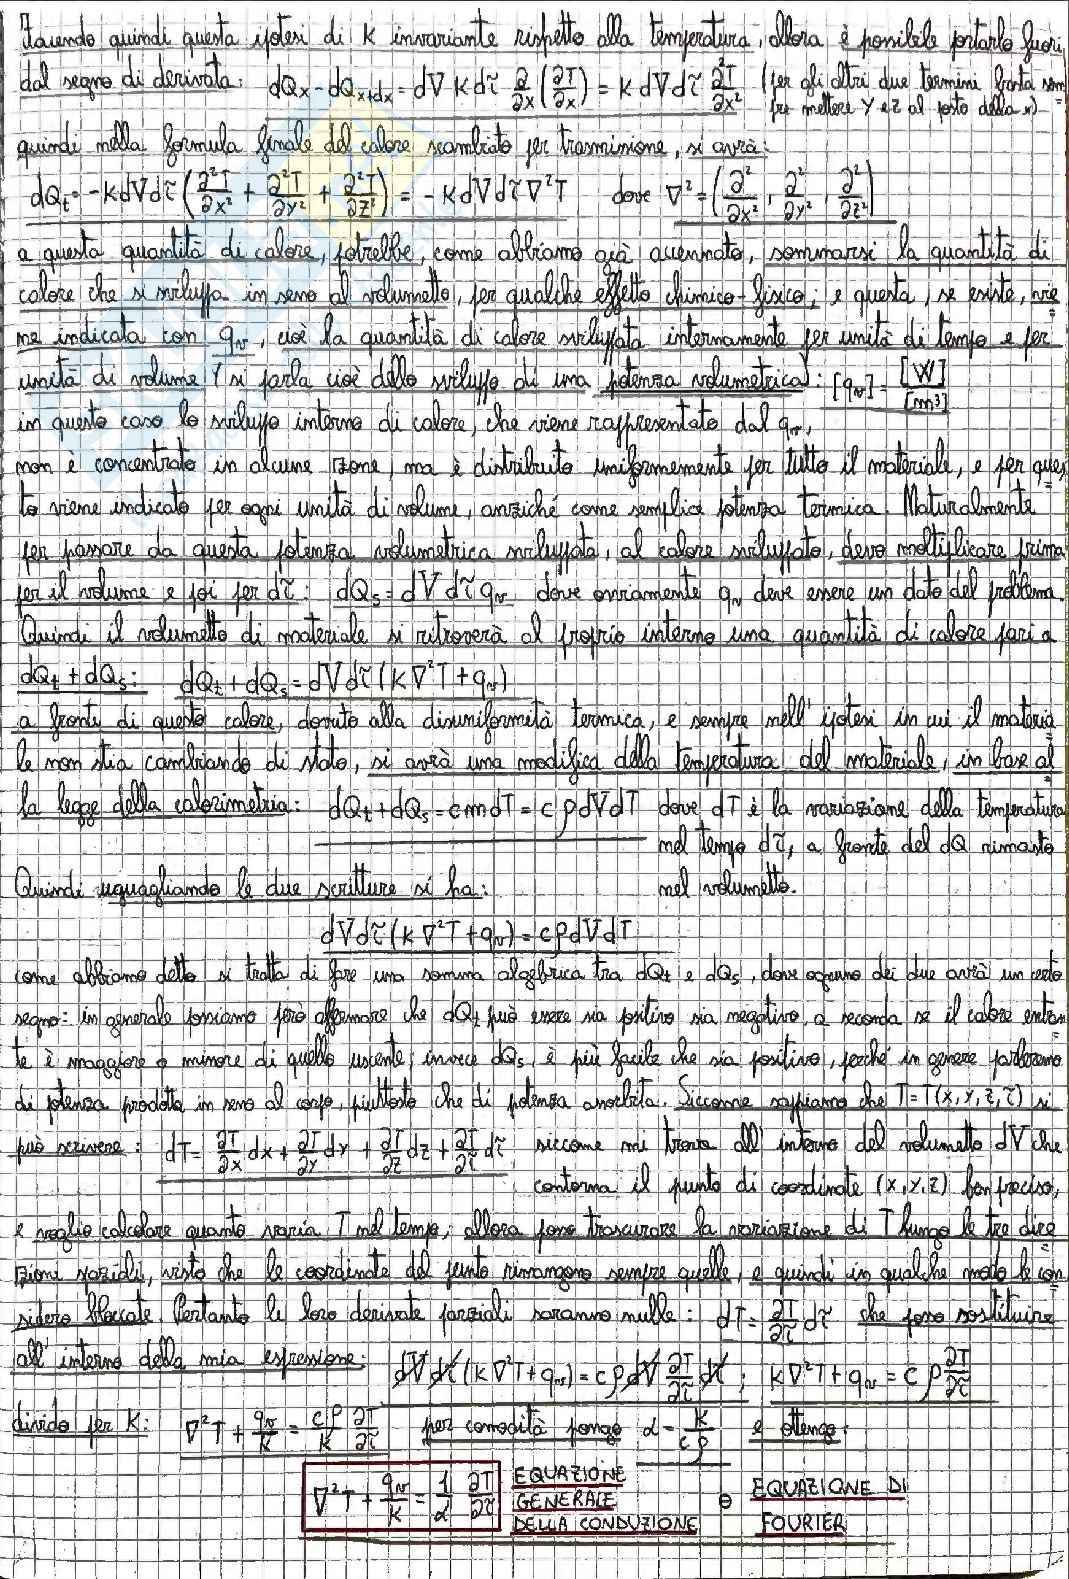 Facendo quindi questa ipotesi di K invariante rispetto alla temperatura, allora è possibile portarlo fuori
dal segno di derivata: dQx - dQx+dx = dV K dτ ∂/∂x (∂T/∂x) = K dV dτ ∂²T/∂x² (per gli altri due termini basta sem=
pre mettere Y e Z al posto della x)
quindi nella formula finale del calore scambiato per trasmissione, si avrà:
dQt = -K dV dτ (∂²T/∂x² + ∂²T/∂y² + ∂²T/∂z²) = -K dV dτ ∇²T dove ∇² = (∂²/∂x², ∂²/∂y², ∂²/∂z²)
a questa quantità di calore, potrebbe, come abbiamo già accennato, sommarsi la quantità di
calore che si sviluppa in seno al volumetto, per qualche effetto chimico-fisico; e questa, se esiste, vie
ne indicata con qv, cioè la quantità di calore sviluppata internamente per unità di tempo e per
unità di volume (si parla cioè dello sviluppo di una potenza volumetrica): [qv] = [W]/[m³]
in questo caso lo sviluppo interno di calore, che viene rappresentato dal qv,
non è concentrato in alcune zone, ma è distribuito uniformemente per tutto il materiale, e per ques=
to viene indicato per ogni unità di volume, anziché come semplice potenza termica. Naturalmente
per passare da questa potenza volumetrica sviluppata, al calore sviluppato, devo moltiplicare prima
per il volume e poi per dτ: dQs = dV dτ qv dove ovviamente qv deve essere un dato del problema.
Quindi il volumetto di materiale si ritroverà al proprio interno una quantità di calore pari a
dQt + dQs: dQt + dQs = dV dτ (K∇²T + qv)
a fronte di questo calore, dovuto alla disuniformità termica, e sempre nell' ipotesi in cui il materia=
le non stia cambiando di stato, si avrà una modifica della temperatura del materiale, in base al
la legge della calorimetria: dQt + dQs = c m dT = c ρ dV dT dove dT è la variazione della temperatura
nel tempo dτ, a fronte del dQ rimasto
Quindi uguagliando le due scritture si ha: nel volumetto.
dV dτ (K∇²T + qv) = c ρ dV dT
come abbiamo detto si tratta di fare una somma algebrica tra dQt e dQs, dove ognuno dei due avrà un certo
segno: in generale possiamo però affermare che dQt può essere sia positivo sia negativo, a seconda se il calore entran=
te è maggiore o minore di quello uscente; invece dQs, è più facile che sia positivo, perché in genere parleremo
di potenza prodotta in seno al corpo, piuttosto che di potenza assorbita. Siccome sappiamo che T = T(x, y, z, τ) si
può scrivere: dT = ∂T/∂x dx + ∂T/∂y dy + ∂T/∂z dz + ∂T/∂τ dτ siccome mi trovo all' interno del volumetto dV che
contorna il punto di coordinate (x, y, z) ben preciso,
e voglio calcolare quanto varia T nel tempo; allora posso trascurare la variazione di T lungo le tre dire=
zioni spaziali, visto che le coordinate del punto rimangono sempre quelle, e quindi in qualche modo le con=
sidero bloccate. Pertanto le loro derivate parziali saranno nulle: dT = ∂T/∂τ dτ che posso sostituire
all' interno della mia espressione: dV dτ (K∇²T + qv) = c ρ dV ∂T/∂τ dτ ; K∇²T + qv = c ρ ∂T/∂τ
divido per K: ∇²T + qv/K = cρ/K ∂T/∂τ per comodità pongo α = K/cρ e ottengo:
∇²T + qv/K = 1/α ∂T/∂τ EQUAZIONE GENERALE DELLA CONDUZIONE O EQUAZIONE DI FOURIER